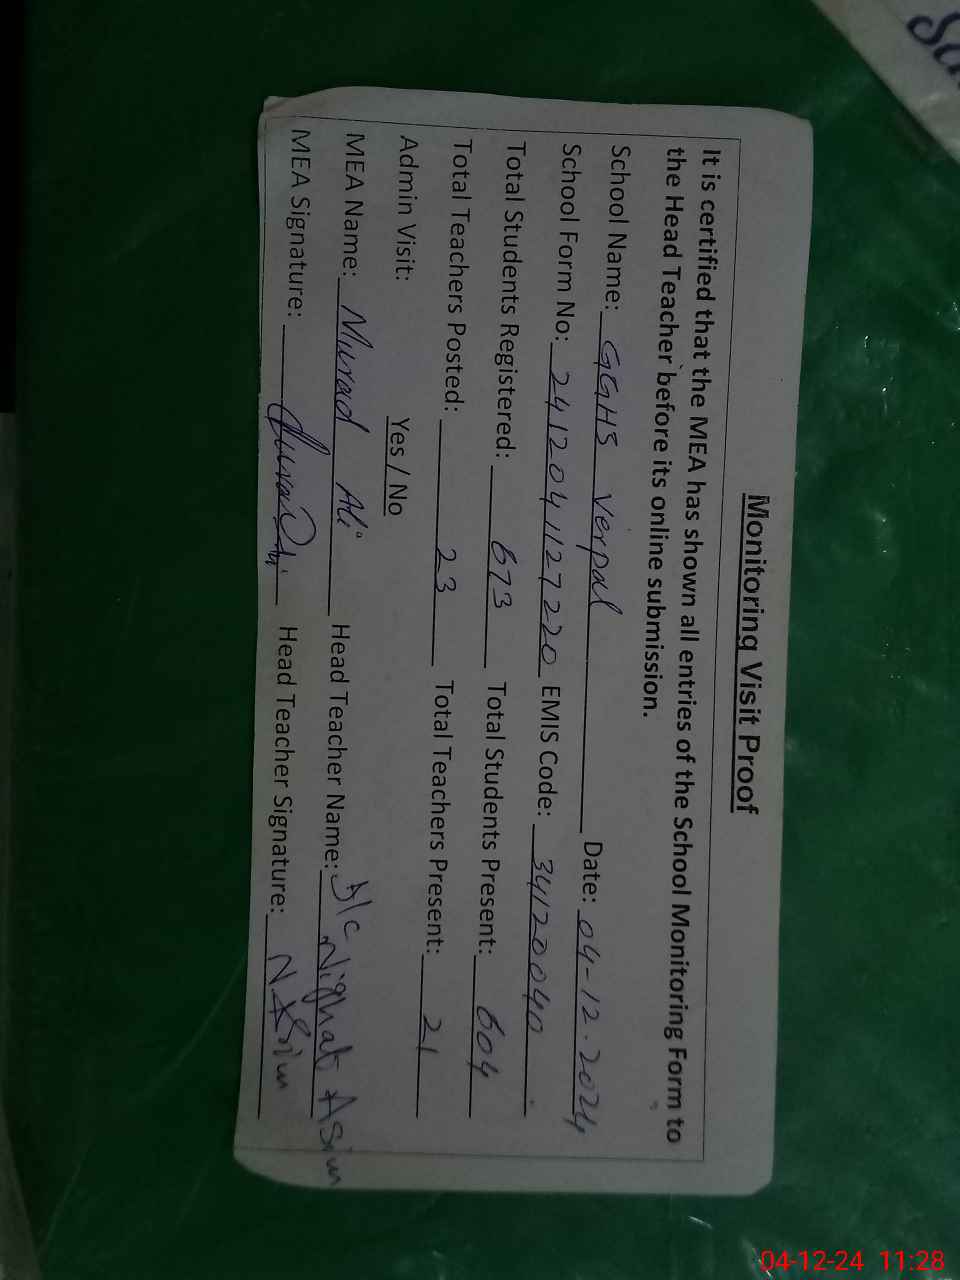 Monitoring Visit Proof
It is certified that the MEA has shown all entries of the School Monitoring Form to
the Head Teacher before its online submission.
School Name: GGHS Verpal Date: 04-12-2024
School Form No: 2412041127220 EMIS Code: 34120040
Total Students Registered: 673 Total Students Present: 604
Total Teachers Posted: 23 Total Teachers Present: 21
Admin Visit: Yes / No
MEA Name: Murad Ali Head Teacher Name: I/C Nighat Asim
MEA Signature: Head Teacher Signature: N. Asim
04-12-24 11:28